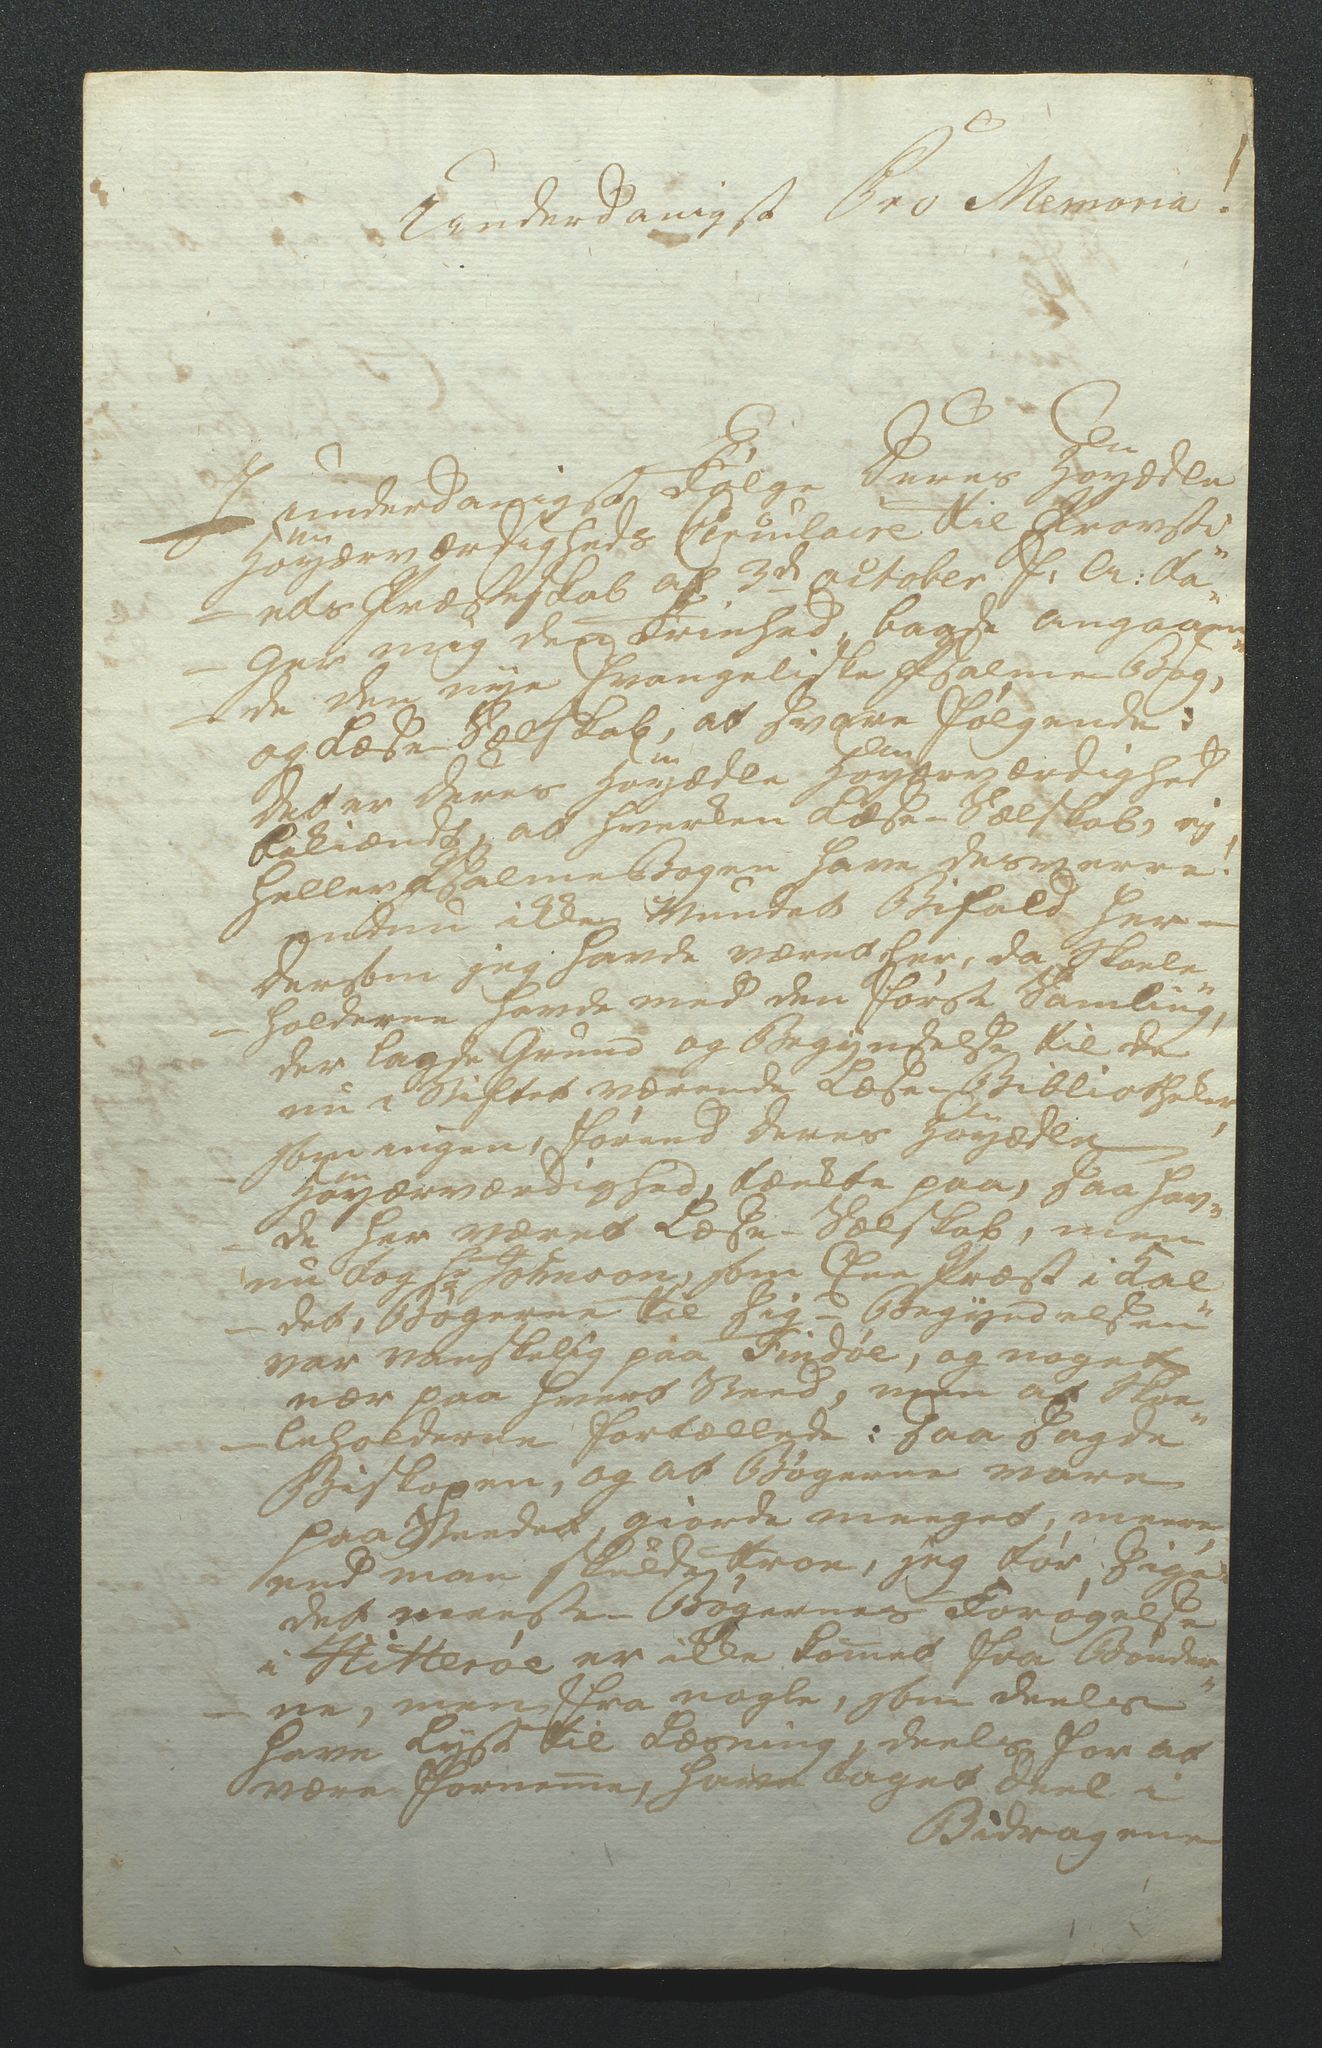 Underdanigst Pro Memoria!
I underdanigst Følge Deres Høyædle
Høyærværdigheds Circulaire til Provsti-
ets Præsteskab af 3d october f: A: ta-
ger mig den Friehed, bagde angaaen-
de den nye Evangeliske Psalme-Bog,
og Læse-Selskab, at svare følgende:
Det er Deres Høyædle Høyærværdighed
bekiændt, at hverken Læse-Selskab, ey
heller Psalme Bogen have desverre!
endnu ikke Vundet Bifald her —
Dersom jeg havde været her, da Skole-
holderne havde med den første Samling,
der lagde Grund og Begyndelse til de
nu i Stiftet værende Læse-Bibliotheker,
som ingen, førend Deres Høyædle
Høyærværdighed, tænkte paa, saa hav-
de her været Læse-Selskab, men
nu tog Hr Johnson, som Ene Præst i Kal-
det, Bøgerne til sig — Begyndelsen
var vanskelig paa Findøe, og noget
nær paa hvert Sted, men at Skoe-
leholderne fortællede: saa sagde
Biskopen, og at Bøgerne vare
paa Stædet, giorde meeget, meere,
end man skulde troe, jeg tør sige
det meeste — Bøgernes Forøgelse
i Hitterøe er ikke komet fra Bønder-
ne, men fra nogle, som deels
have Lyst til Læsning, deels for at
være fornemme, have taget Deel i
Bidragene